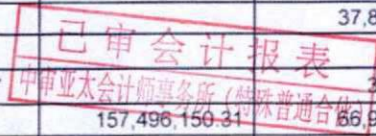 37,8
已审会计报表
中审亚太会计师事务所（特殊普通合伙）
157,496,150.31
66,9